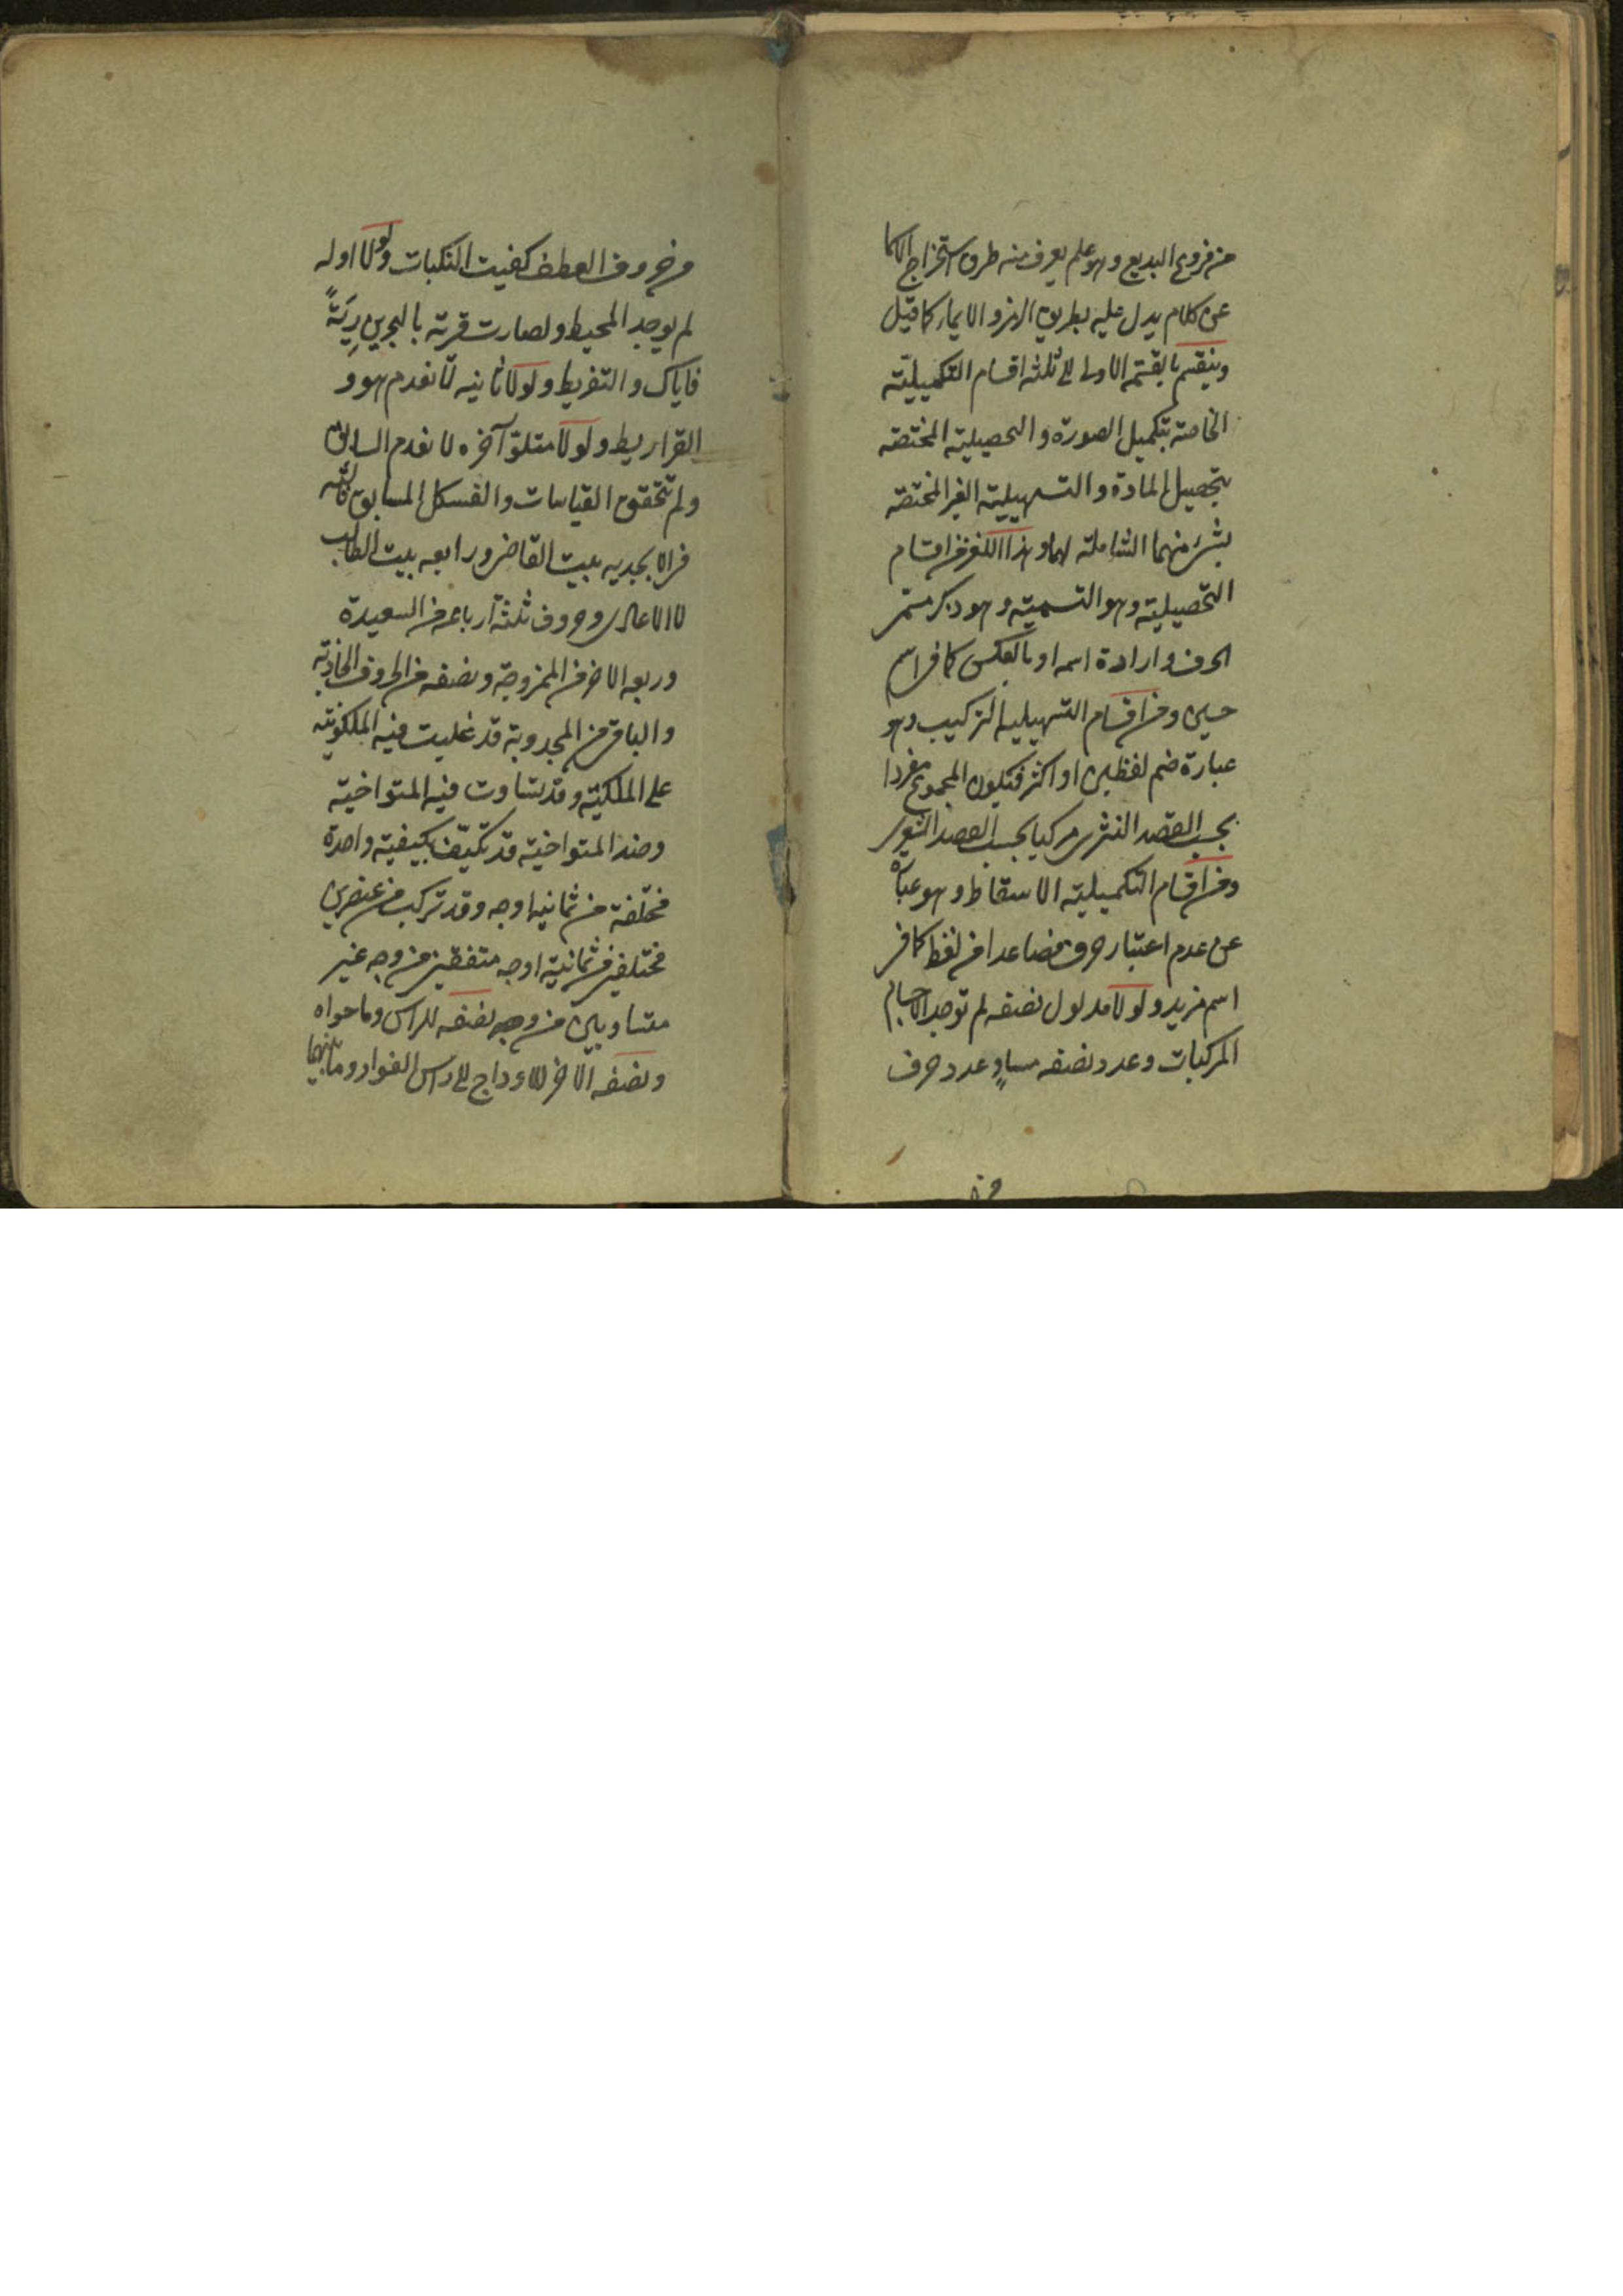 من فروع البديع وهو علم يعرف منه طرق استخراج الاسما
عن كلام يدل عليه بطريق الرمز والايماء كما قيل
وينقسم بالقسمة الاولى الى ثلثة اقسام التكميلية
الخاصة بتكميل الصورة والتحصيلية المختصة
بتحصيل المادة والتسهيلية الغير المختصة
بشئ منهما الشاملة لهما وهذا اللغز من اقسام
التحصيلية وهو التسمية وهو ذكر مسمى
الحرف وارادة اسمه او بالعكس كما فى اسم
حسين ومن اقسام التسهيلية التركيب وهو
عبارة ضم لفظين او اكثر فتكون المجموع مفردا
بحسب القصد النثرى مركبا بحسب القصد
ومن اقسام التكميلية الاسقاط وهو عبارة
عن عدم اعتبار حرف فصاعدا من لفظ كما فى
اسم مزيد ولولا مدلول نصفه لم توجد الاجسام
المركبات وعدد نصفه مساوٍ عدد حرف
وحروف العطف كفيت النكبات ولولا اوله
لم يوجد المحيط ولصارت قرية بالبحرين
فاياك والتفريط ولولا ثانيه لانعدم هو و
القراريط ولولا متلوّ آخره لانعدم السابق
ولم تتحقق القياسات والفسكل المسابق
فى الابجدية بيت القاضى ورابعه بيت الطالب
لا الاعالى وحروف ثلثة ارباعه من السعيدة
وربعه الاخر من الممزوجة ونصفه من الحروف
والباقى من المجذوبة قد غلبت فيه الملكوتية
على الملكية وقد تساوت فيه المتواخية
وضد المتواخية قد تكيّف بكيفية واحدة
مختلفة من ثمانية اوجه وقد تركب من عنصرين
مختلفين من ثمانية اوجه متفقين من وجه غير
متساويين من وجه نصفه للراس وما حواه
ونصفه الاخر للاوداج الى راس الفواد وما بينهما